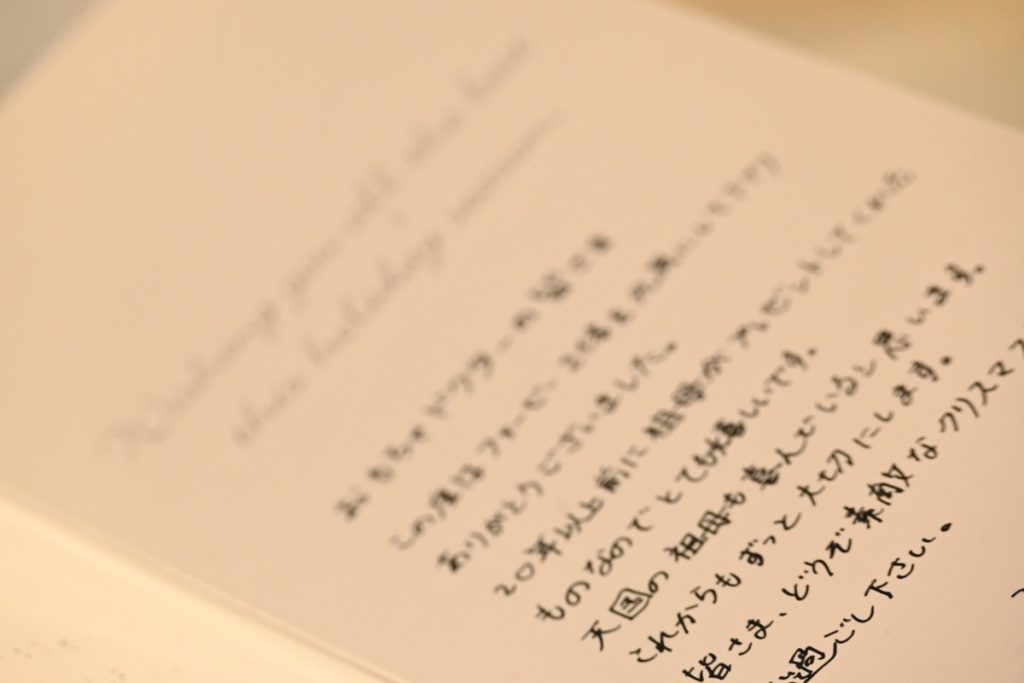 Wishing you all the best
this holiday season
おもちゃドクターの皆さま
この度はファービー2体を元通りにして下さり
ありがとうございました。
20年以上前に祖母がプレゼントしてくれた
ものなのでとても嬉しいです。
天国の祖母も喜んでいると思います。
これからもずっと大切にします。
皆さま、どうぞ素敵なクリスマス
過ごし下さい。